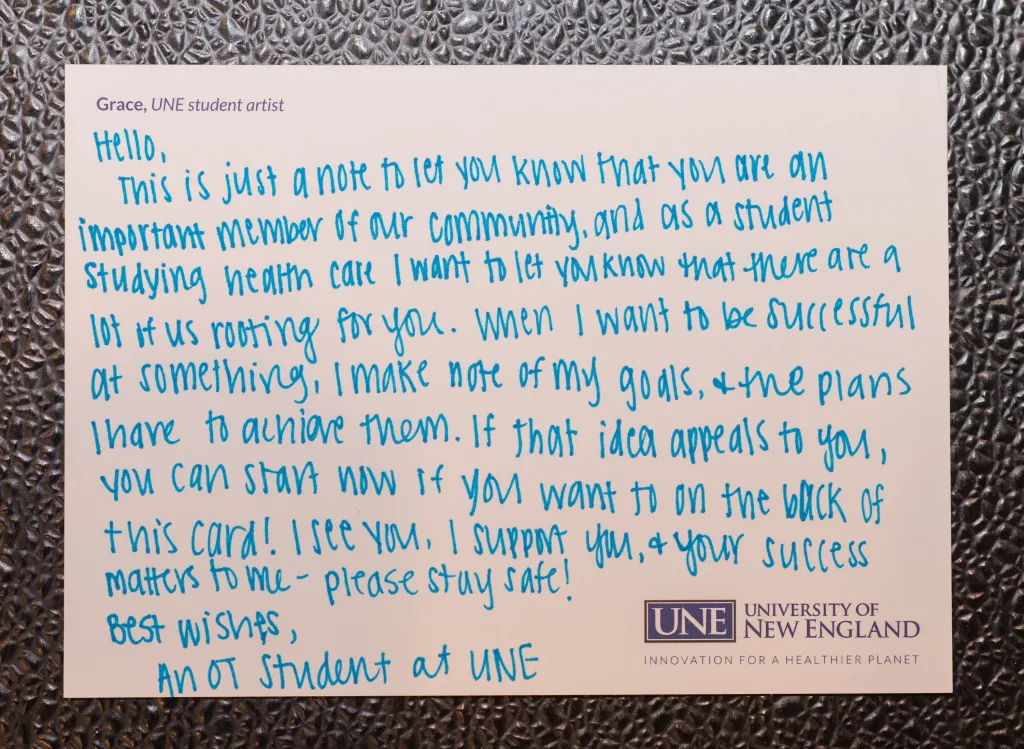 Grace, UNE student artist
Hello,
This is just a note to let you know that you are an
important member of our community, and as a student
studying health care I want to let you know that there are a
lot if us rooting for you. When I want to be successful
at something, I make note of my goals, & the plans
I have to achieve them. If that idea appeals to you,
you can start now if you want to on the back of
this card! I see you, I support you, & your success
matters to me - please stay safe!
Best wishes,
An OT Student at UNE
UNE UNIVERSITY OF
NEW ENGLAND
INNOVATION FOR A HEALTHIER PLANET